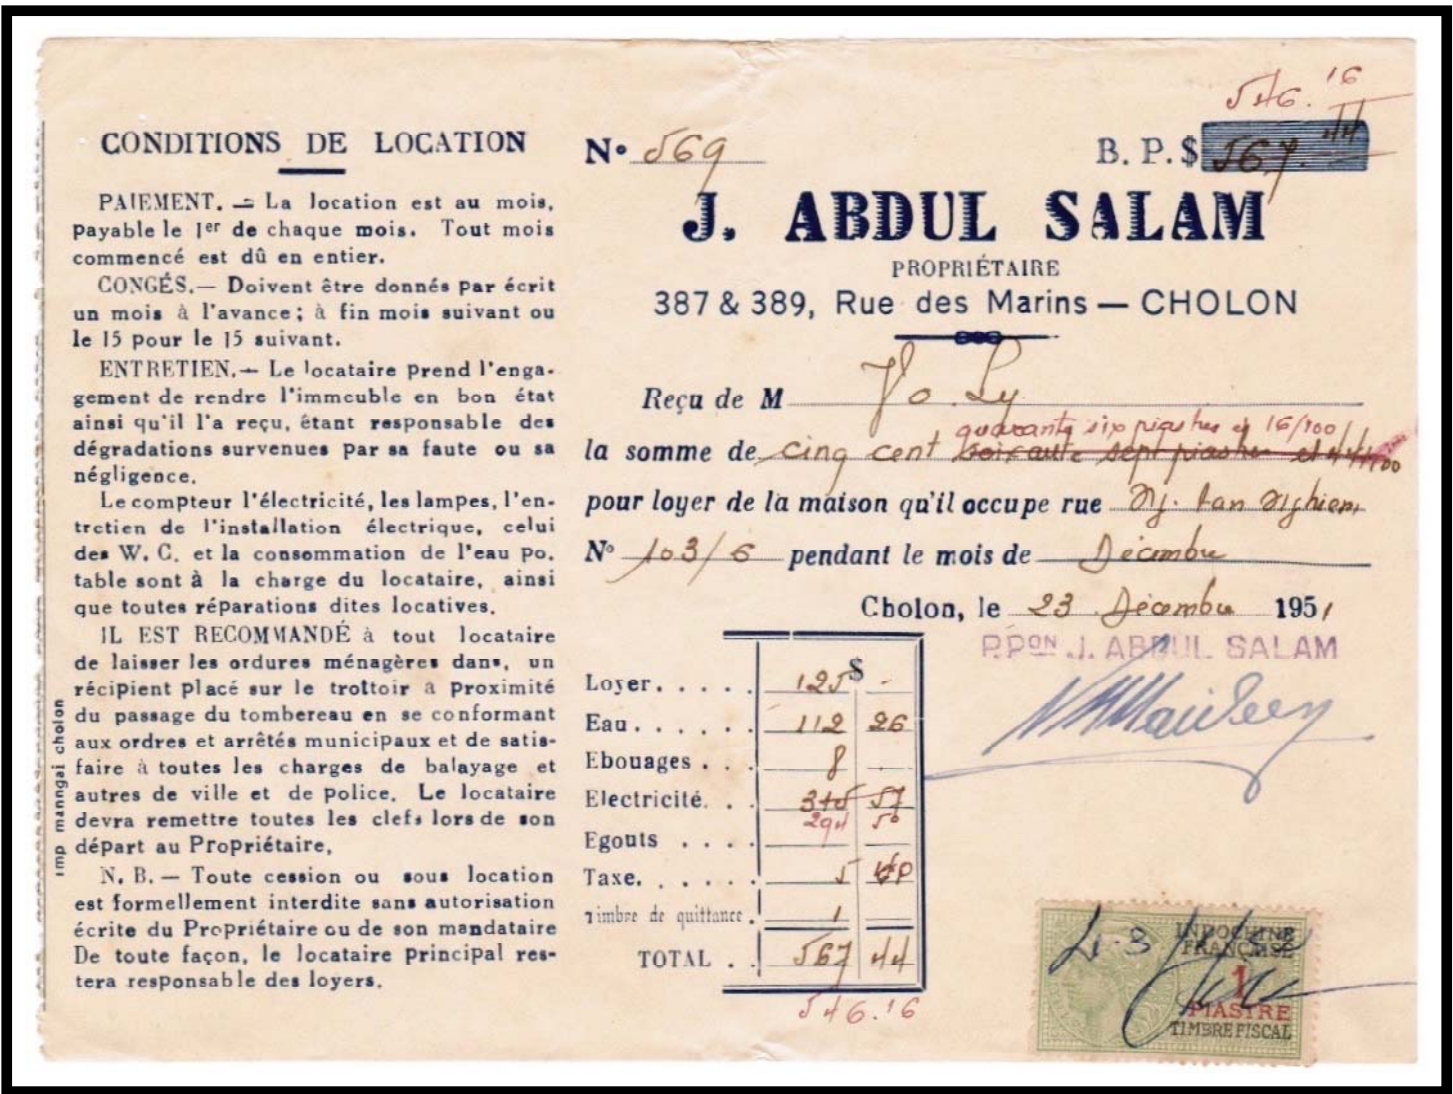 CONDITIONS DE LOCATION
PAIEMENT. — La location est au mois,
payable le 1er de chaque mois. Tout mois
commencé est dû en entier.
CONGÉS.— Doivent être donnés par écrit
un mois à l'avance; à fin mois suivant ou
le 15 pour le 15 suivant.
ENTRETIEN.— Le locataire prend l'enga-
gement de rendre l'immeuble en bon état
ainsi qu'il l'a reçu, étant responsable des
dégradations survenues par sa faute ou sa
négligence.
Le compteur l'électricité, les lampes, l'en-
tretien de l'installation électrique, celui
des W. C. et la consommation de l'eau po.
table sont à la charge du locataire, ainsi
que toutes réparations dites locatives.
IL EST RECOMMANDÉ à tout locataire
de laisser les ordures ménagères dans, un
récipient placé sur le trottoir à proximité
du passage du tombereau en se conformant
aux ordres et arrêtés municipaux et de satis-
faire à toutes les charges de balayage et
autres de ville et de police. Le locataire
devra remettre toutes les clefs lors de son
départ au Propriétaire,
N. B. — Toute cession ou sous location
est formellement interdite sans autorisation
écrite du Propriétaire ou de son mandataire
De toute façon, le locataire principal res-
tera responsable des loyers.
imp manngai cholon
546.16
N° 569 B. P. $ 567.44
J. ABDUL SALAM
PROPRIÉTAIRE
387 & 389, Rue des Marins — CHOLON
Reçu de M Vo Ly
quarante six piastres et 16/100
la somme de cinq cent soixante sept piastres et 44/100
pour loyer de la maison qu'il occupe rue Ng. tan Nghiem
N° 103/6 pendant le mois de Décembre
Cholon, le 23 Décembre 1951
P.PON J. ABDUL SALAM
$
Loyer. . . . . 125 -
Eau . . . . . . 112 26
Ebouages . . . 8
Electricité. . . 315 57
294 50
Egouts . . . .
Taxe. . . . . . 5
Timbre de quittance . 1
TOTAL . . 567 44
546.16
INDOCHINE
FRANÇAISE
1
PIASTRE
TIMBRE FISCAL